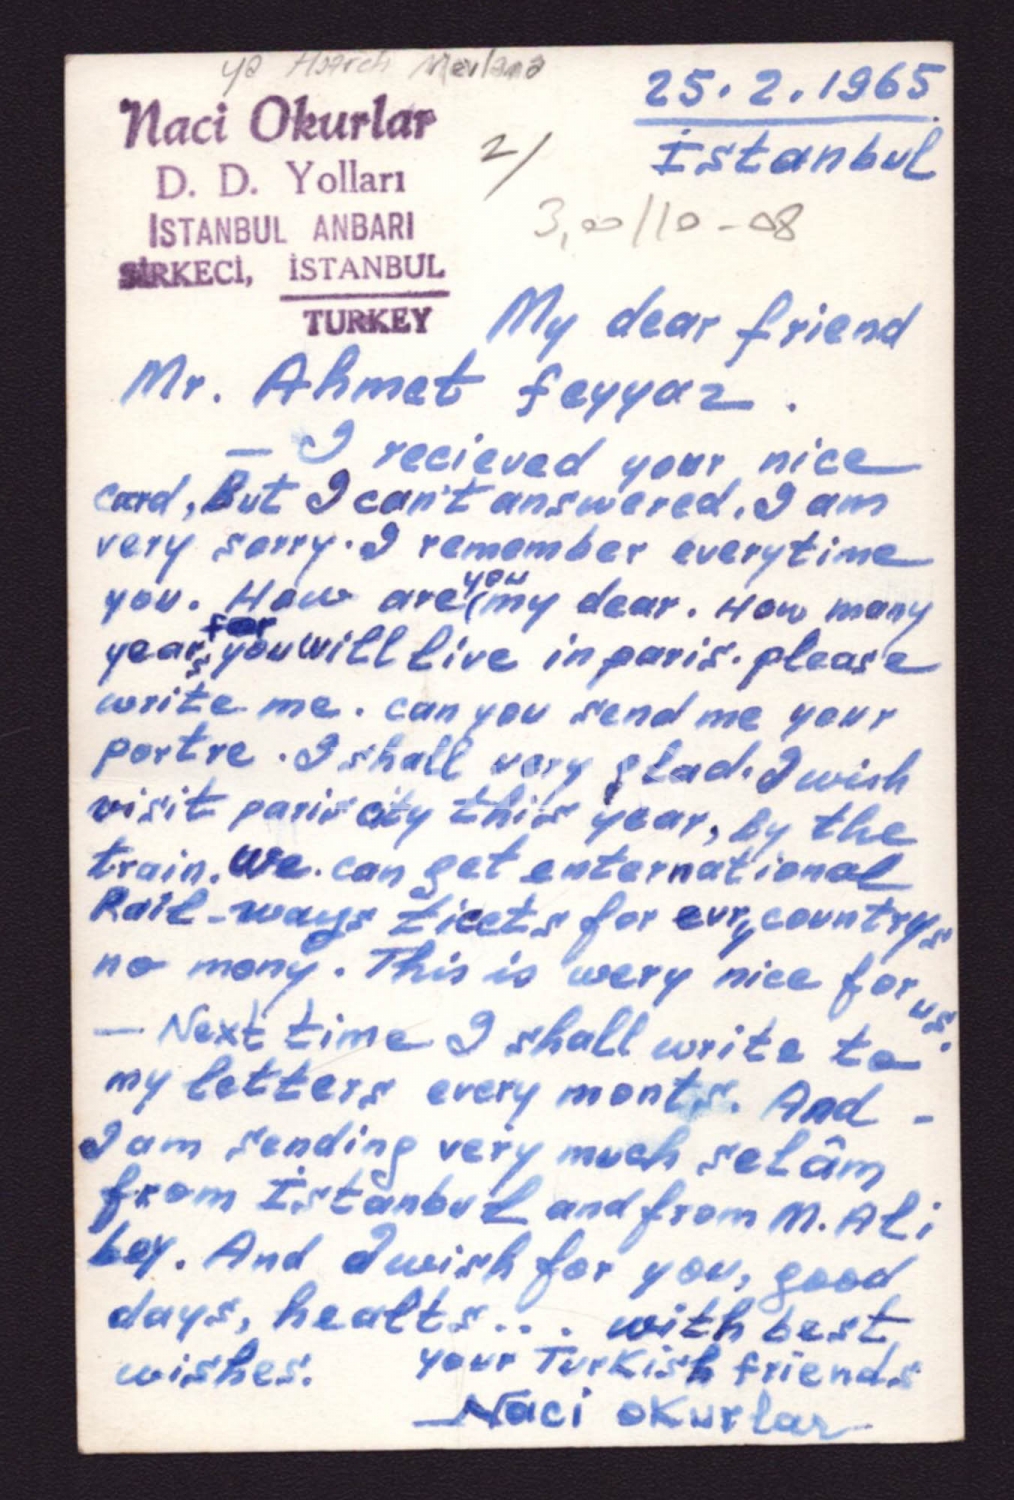 ya Hazreti Mevlana
25.2.1965
Naci Okurlar
İstanbul
D. D. Yolları
2/
İSTANBUL ANBARI
3,00/10-08
SİRKECİ, İSTANBUL
TURKEY
My dear friend
Mr. Ahmet feyyaz.
— I recieved your nice
card, But I can't answered. I am
very sorry. I remember everytime
you. How are you (my dear. How many
years, for you will live in paris. please
write me. can you send me your
portre. I shall very glad. I wish
visit paris city this year, By the
train. We. can get enternational
Rail-ways ticets for evry countrys
no mony. This is wery nice for us.
— Next time I shall write to
my letters every monts. And -
I am sending very much selâm
from İstanbul and from M. Ali
bey. And I wish for you, good
days, healts... with best
wishes. your Turkish friends
Naci okurlar